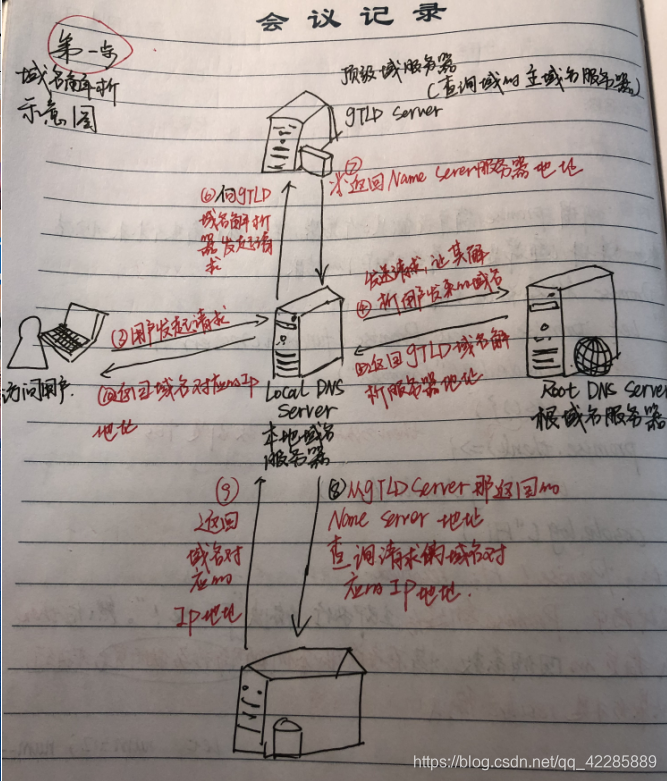 会议记录
第一步
域名解析
示意图
顶级域服务器
(查询域的主域名服务器)
gTLD Server
⑦
返回Name Serer服务器地址
⑥向gTLD
域名解析
器发起请
求
发送请求,让其解
④ 析用户发来的域名
③用户发起请求
⑤返回gTLD域名解
析服务器地址
访问用户
⑩返回域名对应的IP
地址
Local DNS
Server
本地域名
服务器
Root DNS Server
根域名服务器
⑨
返回
域名对
应的
IP地址
⑧从gTLD Server那返回的
Name Server 地址
查询请求的域名对
应的IP地址.
https://blog.csdn.net/qq_42285889